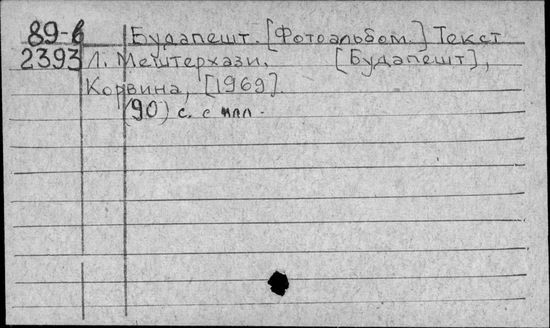 89-6 Будапешт. [Фотоальбом.] Текст
2393 Л. Мештерхази. [Будапешт],
Корвина, [1969].
(90) с. с илл.